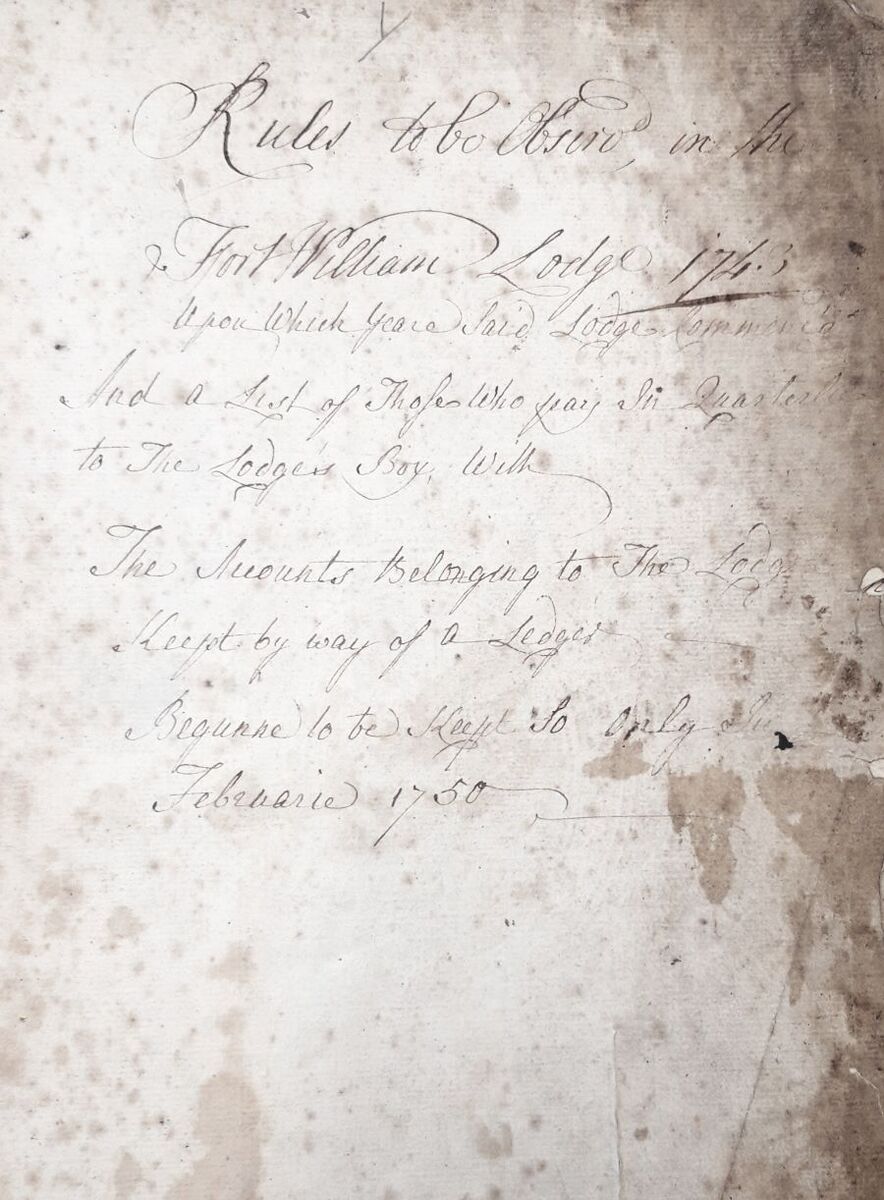 Rules to be Observd, in the
Fort William Lodge 1743
Upon Which Yeare Said Lodge Commenc'd
And a List of Those Who pay In Quarterl
to The Lodges Box, With
The Accounts Belonging to The Lodge
Keept by way of a Ledger
Begunne to be Keept So Only In
Februarie 1750